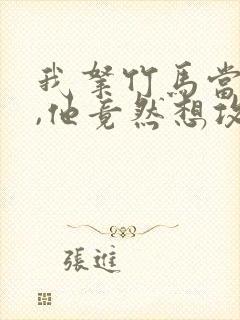 我拏竹馬當
,他竟然想攻
張進